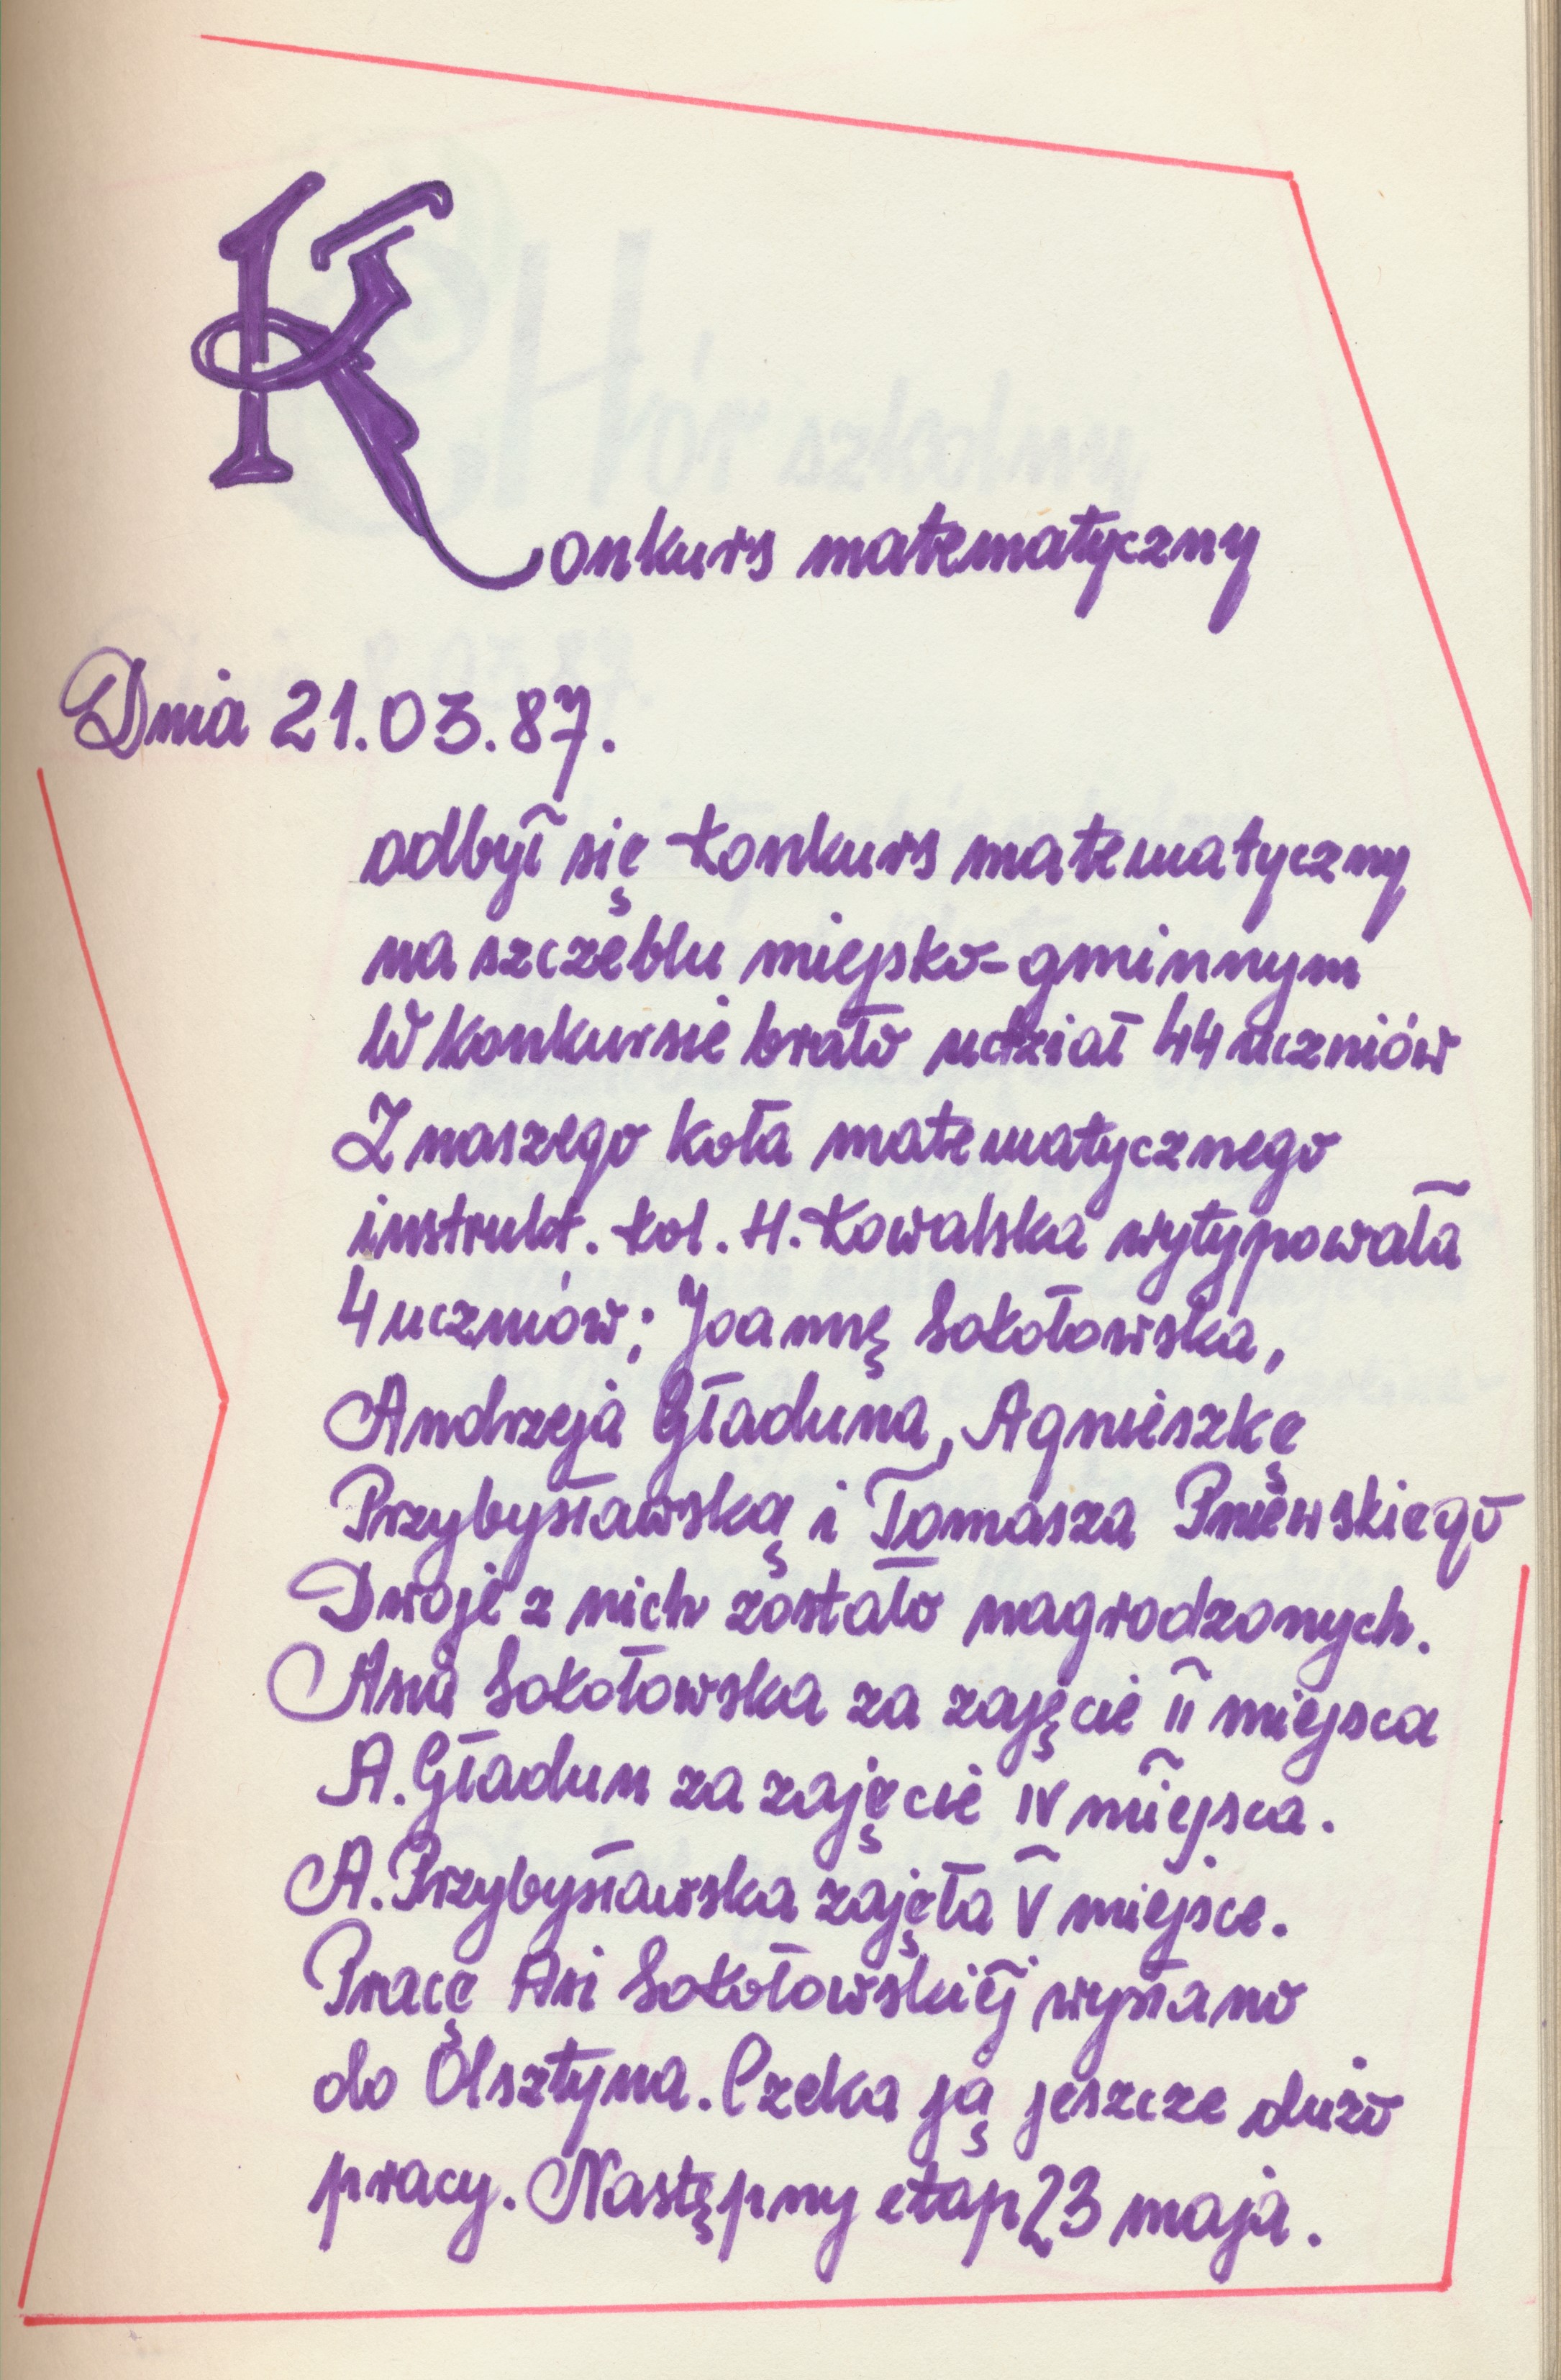 Konkurs matematyczny
Dnia 21.03.87.
odbył się konkurs matematyczny
na szczeblu miejsko-gminnym
W konkursie brało udział 44 uczniów
Z naszego koła matematycznego
instrukt. kol. H. Kowalska wytypowała
4 uczniów; Joannę Sokołowska,
Andrzeja Gładuna, Agnieszkę
Przybysławską i Tomasza Pniewskiego
Dwoje z nich zostało nagrodzonych.
Asia Sokołowska za zajęcie II miejsca
A. Gładun za zajęcie IV miejsca.
A. Przybysławska zajęła V miejsce.
Pracę Asi Sokołowskiej wysłano
do Olsztyna. Czeka ją jeszcze dużo
pracy. Następny etap 23 maja.